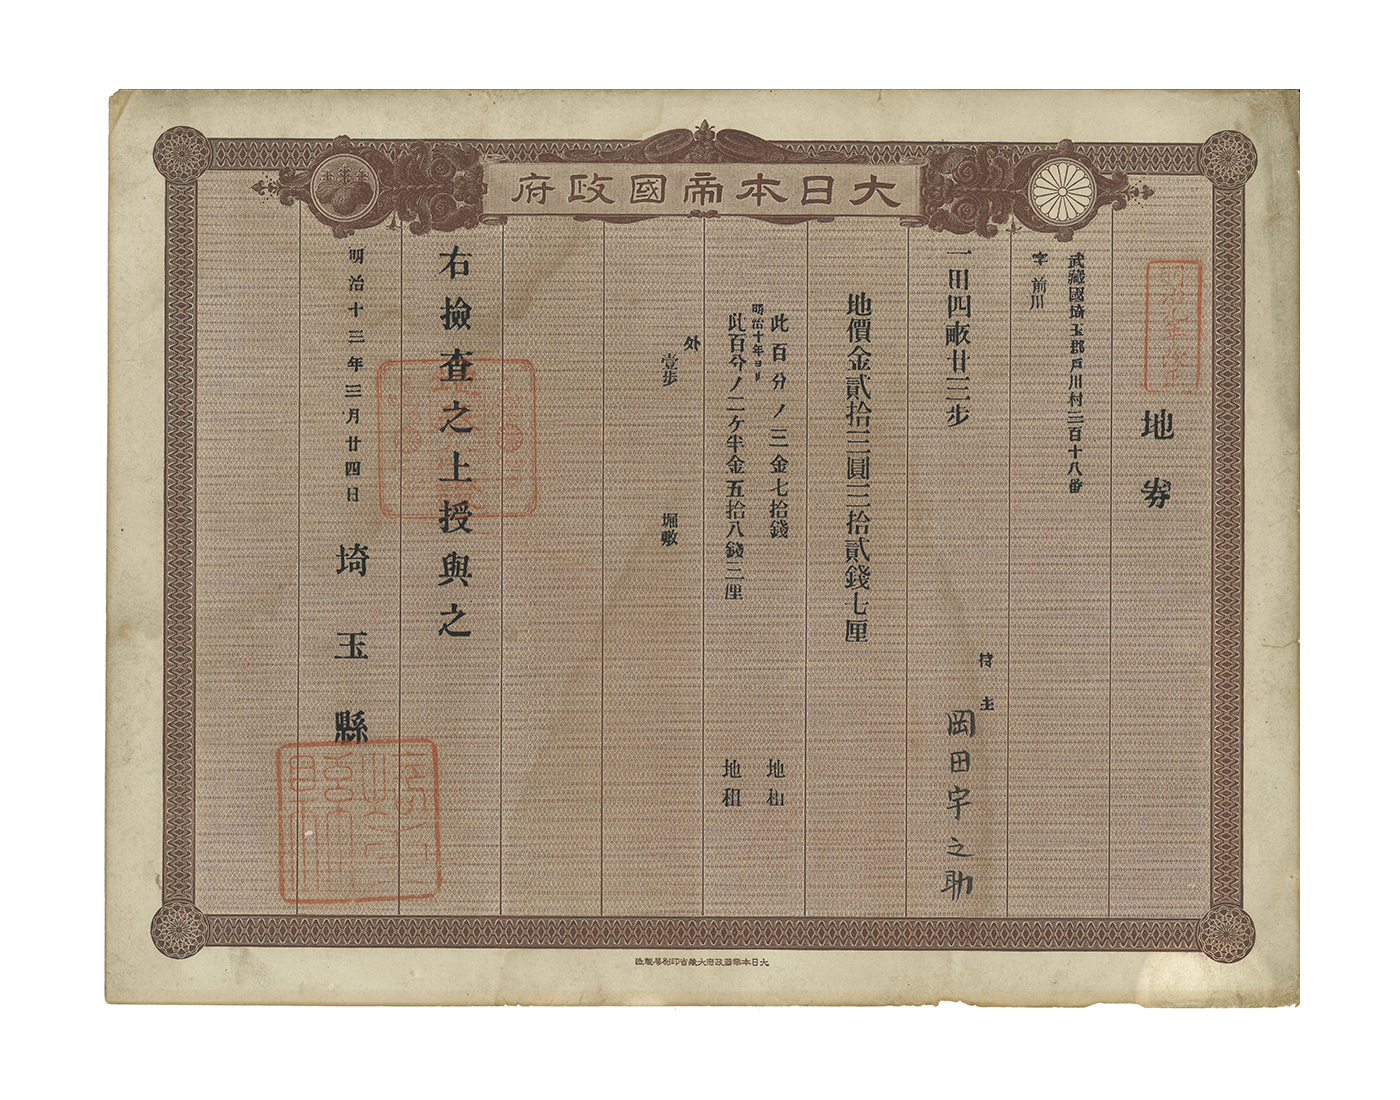 大日本帝國政府
明治九年改正
地券
武藏國埼玉郡戸川村三百十八番
字 前川
持主 岡田宇之助
一田四畝廿三步
地價金貳拾三圓三拾貳錢七厘
此百分ノ三金七拾錢 地租
明治十年ヨリ
此百分ノ二ヶ半金五拾八錢三厘 地租
外
壹步 堀敷
右檢査之上授與之
明治十三年三月廿四日 埼玉縣
大日本帝國政府大藏省印刷局製造